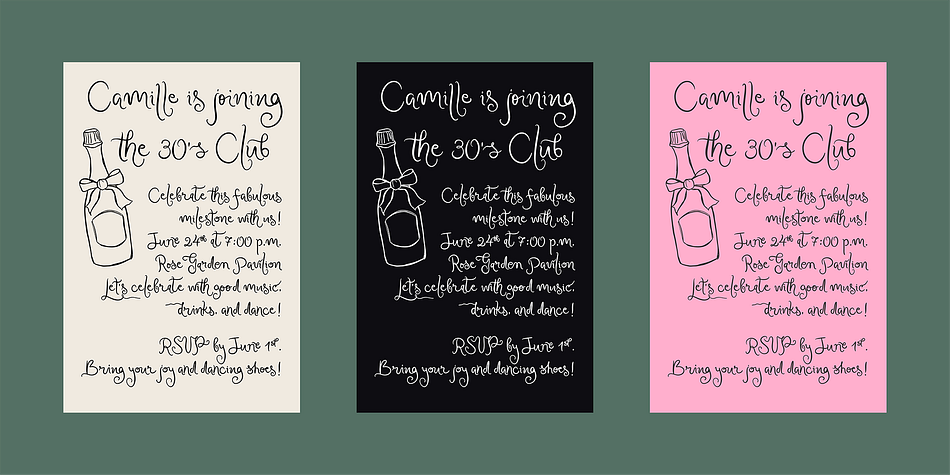 Camille is joining
the 30's Club
Celebrate this fabulous
milestone with us!
June 24th at 7:00 p.m.
Rose Garden Pavilion
Let's celebrate with good music,
drinks, and dance!
RSVP by June 1st.
Bring your joy and dancing shoes!
Camille is joining
the 30's Club
Celebrate this fabulous
milestone with us!
June 24th at 7:00 p.m.
Rose Garden Pavilion
Let's celebrate with good music,
drinks, and dance!
RSVP by June 1st.
Bring your joy and dancing shoes!
Camille is joining
the 30's Club
Celebrate this fabulous
milestone with us!
June 24th at 7:00 p.m.
Rose Garden Pavilion
Let's celebrate with good music,
drinks, and dance!
RSVP by June 1st.
Bring your joy and dancing shoes!